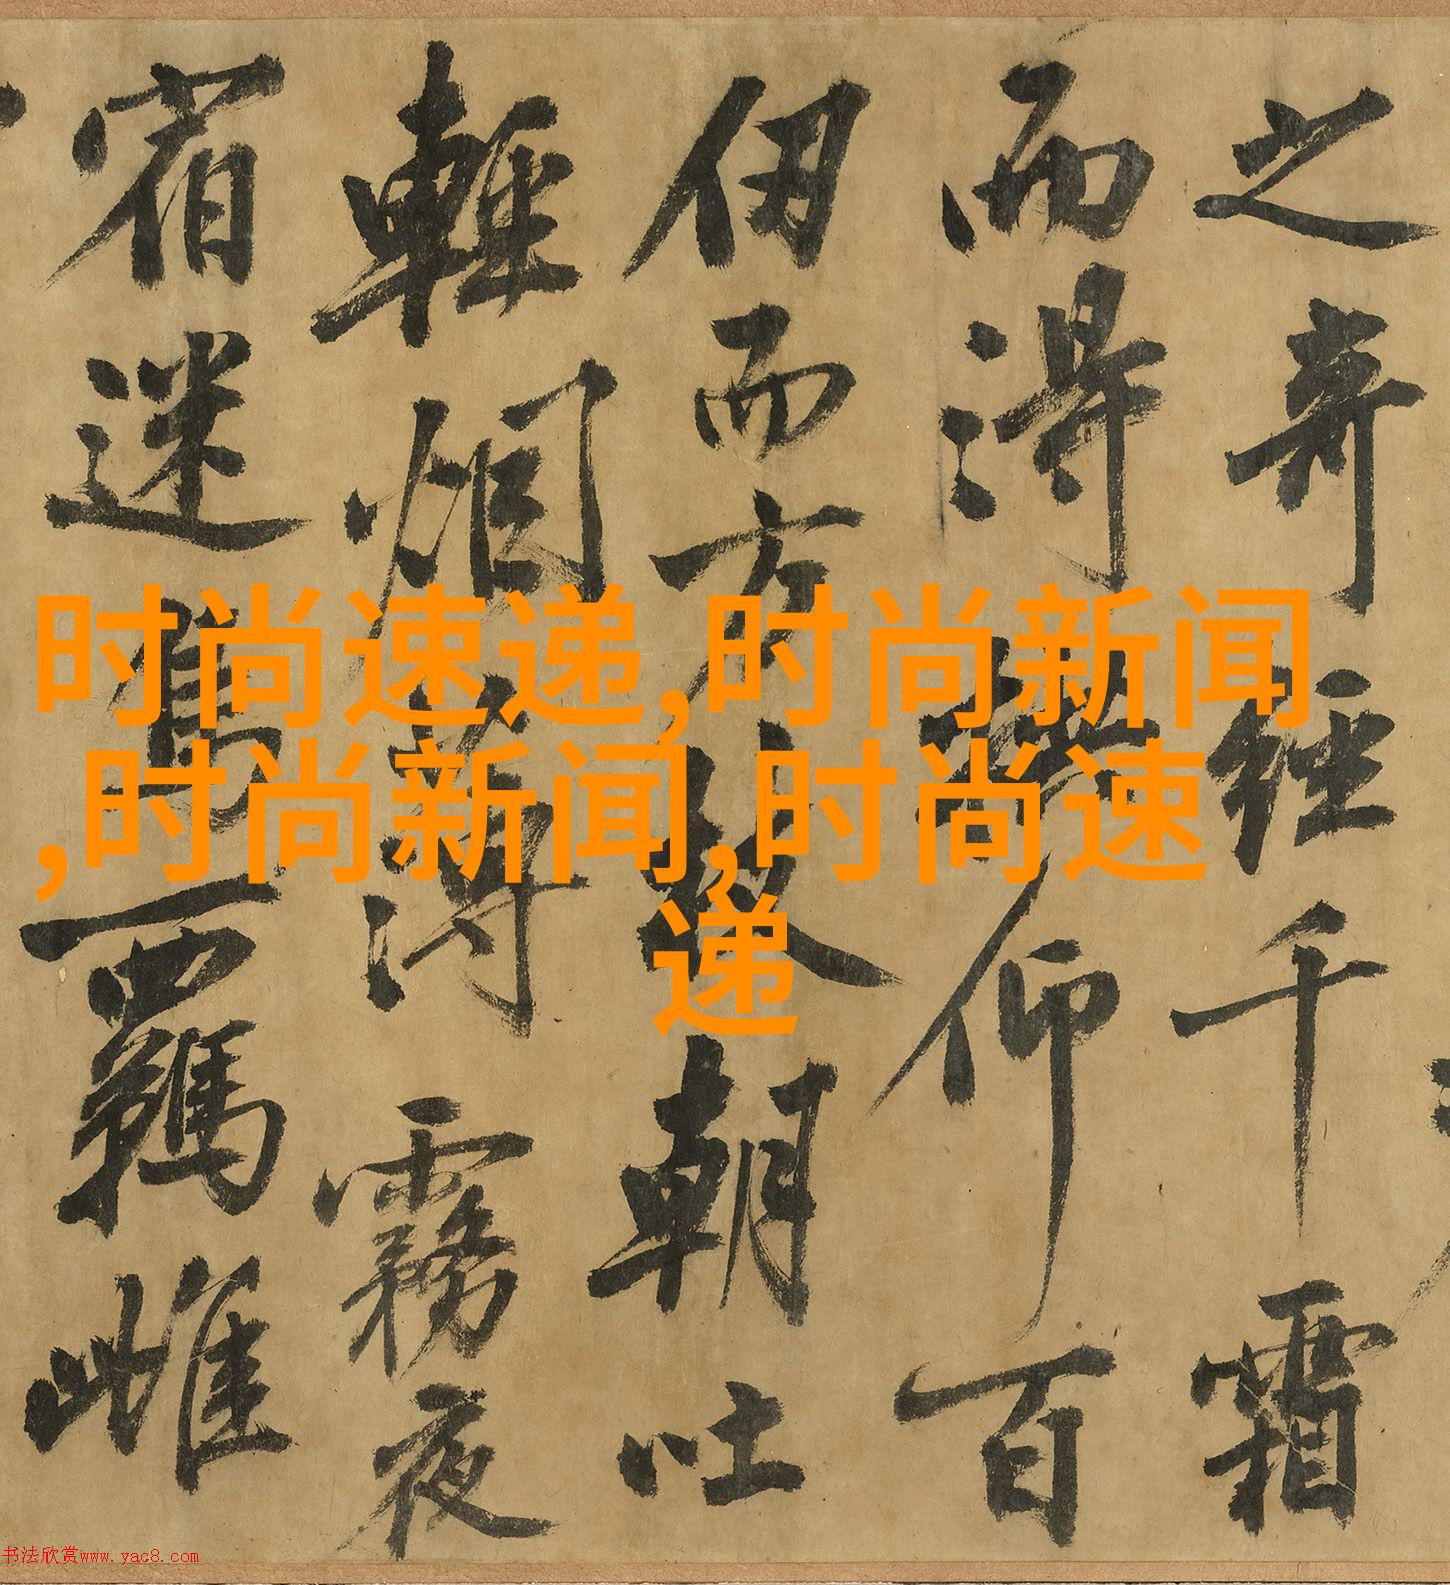 之奇經千霜
而得拱仰百
仞而方枝朝吐
輕烟薄霧夜
宿迷鳥羈雌
时尚速递,时尚新闻
,时尚新闻,时尚速
递
书法欣赏www.yac8.com